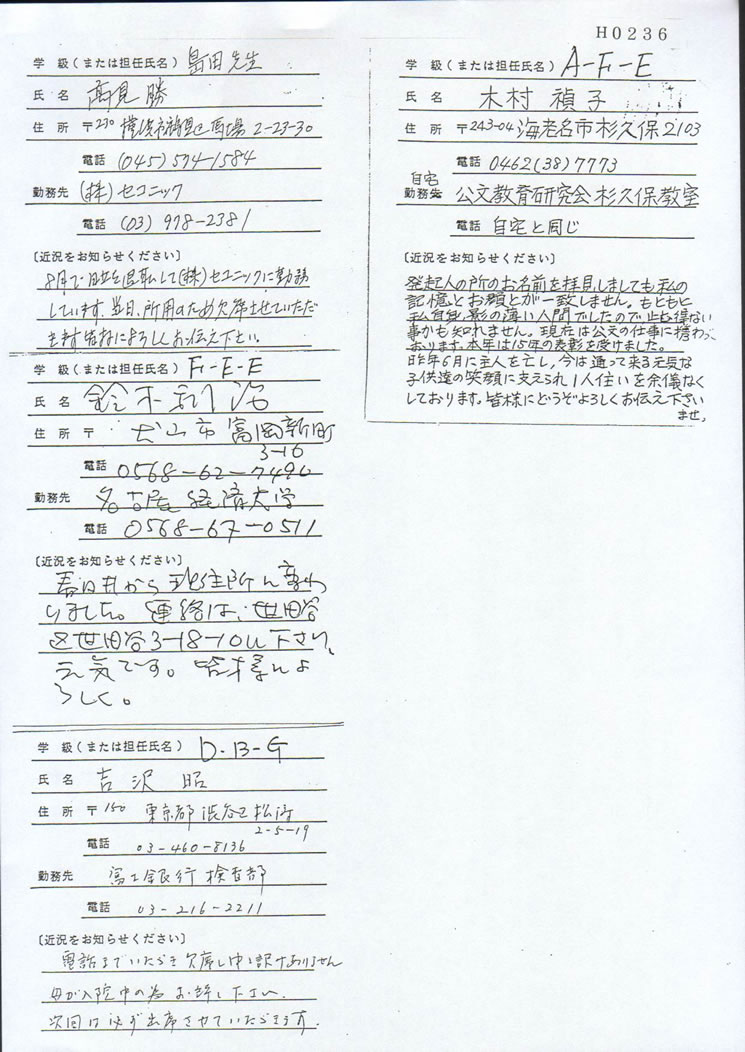 H0236
学 級(または担任氏名) 島田先生
氏 名 高見 勝
住 所 〒230 横浜市鶴見区馬場 2-23-30
電話 (045) 574-1584
勤務先 (株)セコニック
電話 (03) 978-2381
〔近況をお知らせください〕
8月で日立を退職して(株)セコニックに勤務
しています。当日、所用のため欠席させていただ
きます。皆様によろしくお伝え下さい。
学 級(または担任氏名) F-E-E
氏 名 鈴木
住 所 〒 犬山市富岡新町
3-16
電話 0568-62-7490
勤務先 名古屋経済大学
電話 0568-67-0511
〔近況をお知らせください〕
春日井から現住所に変わ
りました。連絡は、世田谷
区世田谷3-18-10に下さい。
元気です。皆様によ
ろしく。
学 級(または担任氏名) D-B-G
氏 名 吉沢 昭
住 所 〒150 東京都渋谷区松濤
2-5-19
電話 03-460-8136
勤務先 富士銀行検査部
電話 03-216-2211
〔近況をお知らせください〕
電話までいただき欠席し申し訳ありません
母が入院中の為お許し下さい。
次回は必ず出席させていただきます。
学 級(または担任氏名) A-F-E
氏 名 木村 禎子
住 所 〒243-04 海老名市杉久保2103
電話 0462(38)7773
自宅
勤務先 公文教育研究会杉久保教室
電話 自宅と同じ
〔近況をお知らせください〕
発起人の所のお名前を拝見しましても私の
記憶とお顔とが一致しません。もともと
私自身、影の薄い人間でしたので止む得ない
事かも知れません。現在は公文の仕事に携わって
おります。本年は15年の表彰を受けました。
昨年6月に主人を亡し、今は通って来る元気な
子供達の笑顔に支えられ1人住いを余儀なく
しております。皆様にどうぞよろしくお伝え下さい
ませ。